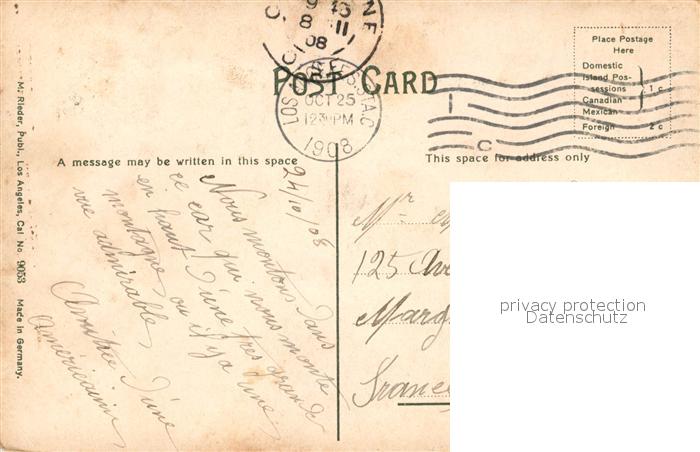 NE
8 11
08
POST CARD
LOS
OCT 25
12 30 PM
1908
C
Place Postage
Here
Domestic
Island Pos-
sessions
Canadian
Mexican
1 c
Foreign 2 c
A message may be written in this space
This space for address only
M. Rieder, Publ., Los Angeles, Cal No. 9053 Made in Germany.
24/10/08
Nous montons dans
ce car qui nous monte
en haut d'une très grande
montagne ou il y a une
vue admirable,
Amitié d'une
Américaine
Mr
125 Ave
Marg
France
privacy protection
Datenschutz